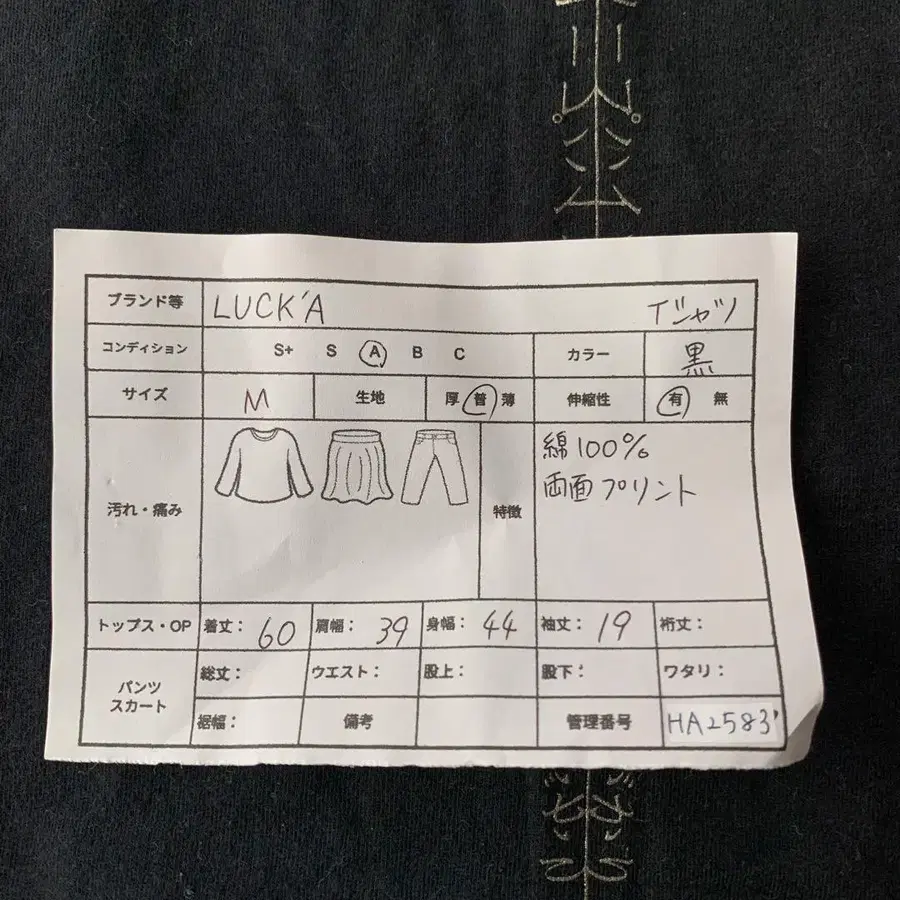 ブランド等 LUCK'A Tシャツ
コンディション S+ S A B C カラー 黒
サイズ M 生地 厚 普 薄 伸縮性 有 無
汚れ・痛み 特徴 綿100%
両面プリント
トップス・OP 着丈: 60 肩幅: 39 身幅: 44 袖丈: 19 裄丈:
パンツ
スカート
総丈: ウエスト: 股上: 股下: ワタリ:
裾幅: 備考 管理番号 HA2583'